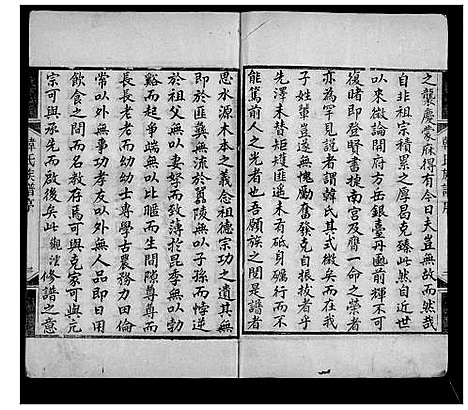 之襲慶蒙庥得有今日夫豈無故而然哉
自非祖宗積累之厚曷克臻此然自近世
以來微論開府方岳銀臺丹圅前輝不可
復睹即登賢書捷南宮及膺一命之榮者
亦為罕見説者謂韓氏其式微矣而在我
子姓輩豈遂無愧勵奮發克自振拔者乎
先澤未替矩矱匪遥未有砥身礪行而不
能篤前人之光者也吾願族之閲是譜者
思水源木本之義念祖德宗功之遺其無
即於匪彝無流於嚚陵無以子孫而悖逆
於祖父無以妻致薄於昆季無以勃
谿而起爭無以比暱而生閒隙尊尊而
長長老老而幼幼士專學古農務力田倫
常以外無事功孝友以外無人品即日用
飲食之間而名教存焉可與克家可與亢
宗可與承先而啟後矣此觀瀅修譜之意
韓氏族譜序